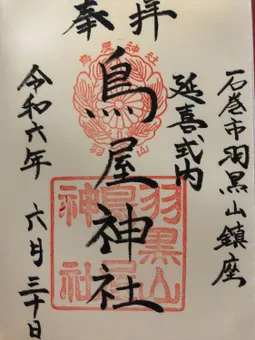 奉拝
石巻市羽黒山鎮座
延喜式内
鳥屋神社
令和六年 六月三十日
鳥屋神社
羽黒山
羽黒山
鳥屋
神社